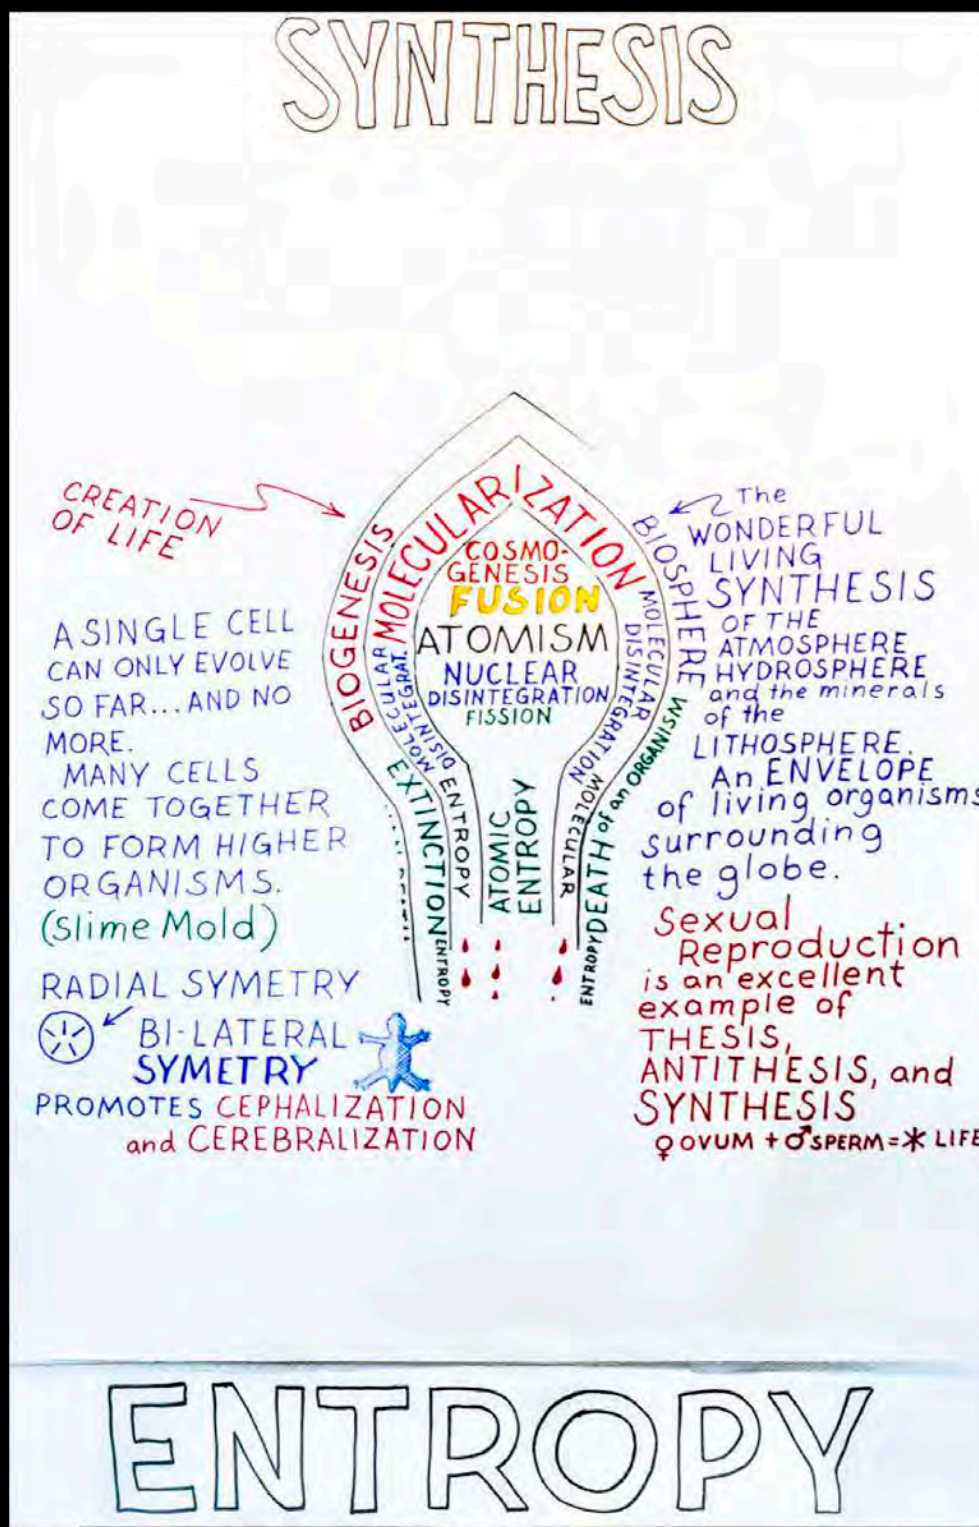 SYNTHESIS
CREATION
OF LIFE
A SINGLE CELL
CAN ONLY EVOLVE
SO FAR... AND NO
MORE.
MANY CELLS
COME TOGETHER
TO FORM HIGHER
ORGANISMS.
(Slime Mold)
RADIAL SYMETRY
BI-LATERAL
SYMETRY
PROMOTES CEPHALIZATION
and CEREBRALIZATION
BIOGENESIS
BIOSPHERE
MOLECULARIZATION
COSMO-
GENESIS
FUSION
ATOMISM
NUCLEAR
DISINTEGRATION
FISSION
MOLECULAR
DISINTEGRAT.
MOLECULAR
DISINTEGRATION
EXTINCTION
ENTROPY
ENTROPY
ATOMIC
ENTROPY
MOLECULAR
DEATH of an ORGANISM
ENTROPY
The
WONDERFUL
LIVING
SYNTHESIS
OF THE
ATMOSPHERE
HYDROSPHERE
and the minerals
of the
LITHOSPHERE.
An ENVELOPE
of living organisms
surrounding
the globe.
Sexual
Reproduction
is an excellent
example of
THESIS,
ANTITHESIS, and
SYNTHESIS
♀ OVUM + ♂ SPERM = * LIFE
ENTROPY